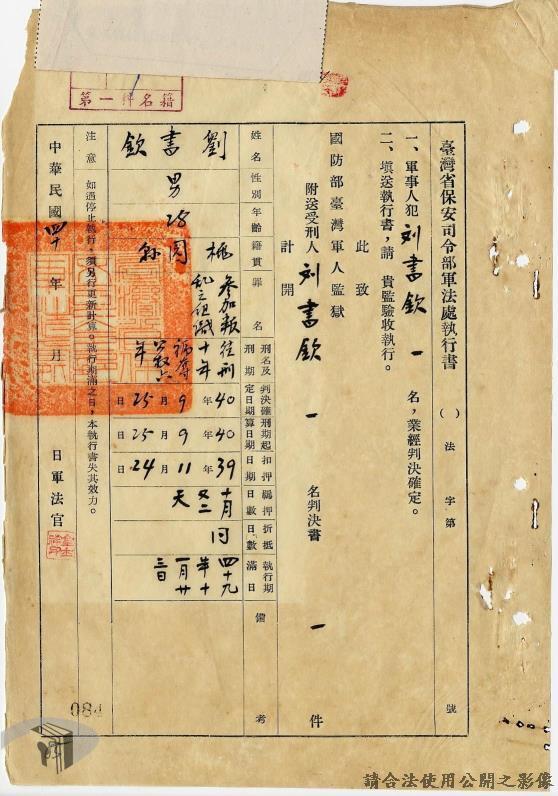 第一件名籍
臺灣省保安司令部軍法處執行書
( ) 法 字第 號
一、軍事人犯 刘書欽 一 名,業經判決確定。
二、填送執行書,請 貴監驗收執行。
此致
國防部臺灣軍人監獄
附送受刑人 刘書欽 一 名判決書 一 件
計開
姓名 劉書欽
性別 男
年齡 28
籍貫
罪名 參加叛亂之組織
刑名及刑期 徒刑十年 褫奪公權六年
判決確定日期 40年9月25日
刑期起算日期 40年9月25日
扣押日期 39年11月24日
羈押日數 十月又二天
折抵日數 同
執行期滿日 四十九年十一月廿三日
備考
注意 如遇停止執行,須另行更新計算。執行期滿之日,本執行書失其效力。
中華民國 四十 年 月 日
軍法官
084
請合法使用公開之影像